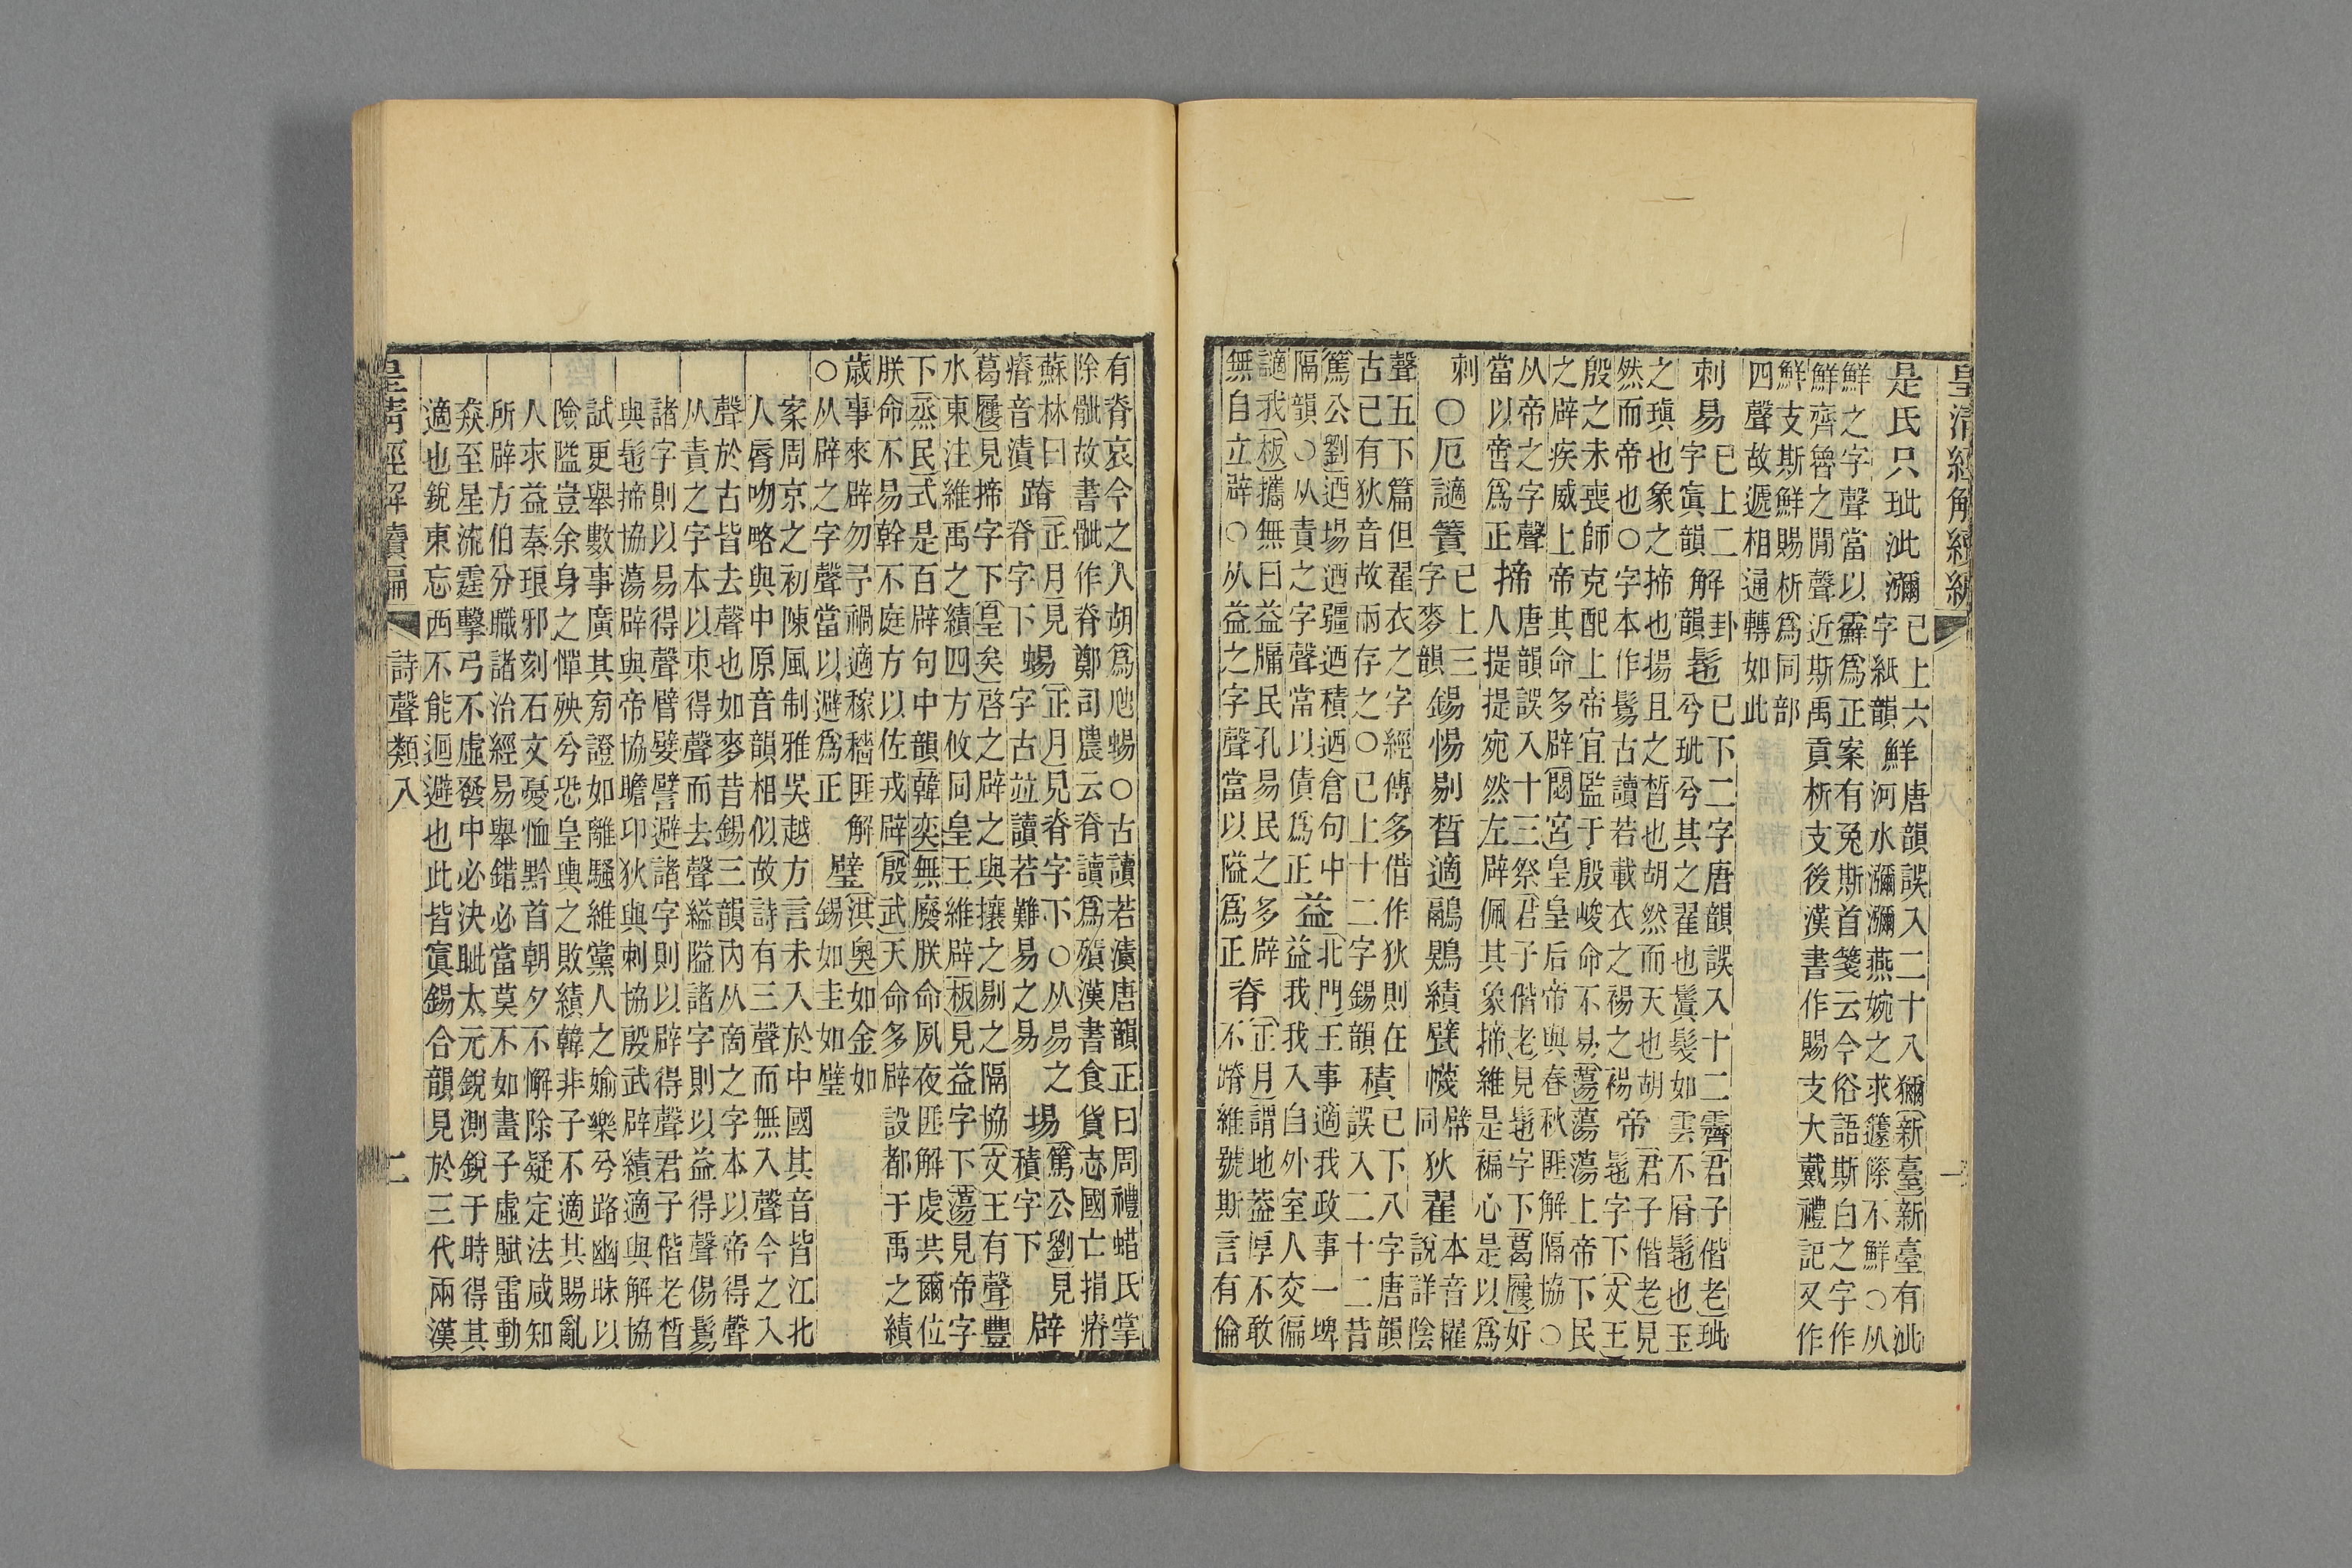 皇清經解續編
一
是氏只玼泚瀰
已上六
字紙韻
鮮
唐韻誤入二十八獮新臺新臺有泚
河水瀰瀰燕婉之求籧篨不鮮○从
鮮之字聲當以霹爲正案有兔斯首箋云今俗語斯白之字作
鮮齊魯之閒聲近斯禹貢析支後漢書作賜支大戴禮記又作
鮮支斯鮮賜析爲同部
四聲故遞相通轉如此
刺易
已上二
字寘韻
解
卦
韻
髢
已下二字唐韻誤入十二霽君子偕老玼
兮玼兮其之翟也鬒髮如雲不屑髢也玉
之瑱也象之揥也揚且之皙也胡然而天也胡
然而帝也○字本作鬄古讀若載衣之裼之裼
帝
君子偕老見
髢字下文王
殷之未喪師克配上帝宜監于殷峻命不易蕩蕩蕩上帝下民
之辟疾威上帝其命多辟閟宮皇皇后帝與春秋匪解隔協○
从帝之字聲
當以啻爲正
揥
唐韻誤入十三祭君子偕老見髢字下葛屨好
人提提宛然左辟佩其象揥維是褊心是以爲
刺○厄謫簀
已上三
字麥韻
錫惕剔皙適鷊鶂績甓幭
幦
同
狄翟
本音櫂
說詳陰
聲五下篇但翟衣之字經傳多借作狄則在
古已有狄音故兩存之○已上十二字錫韻
積
已下八字唐韻
誤入二十二昔
篤公劉迺場迺疆迺積迺倉句中
隔韻○从責之字聲當以債爲正
益
北門王事適我政事一埤
益我我入自外室人交徧
讁我板攜無曰益牖民孔易民之多辟
無自立辟○从益之字聲當以隘爲正
脊
正月謂地蓋厚不敢
不蹐維號斯言有倫
有脊哀今之人胡爲虺蜴○古讀若漬唐韻正曰周禮蜡氏掌
除骴故書骴作脊鄭司農云脊讀爲殰漢書食貨志國亡捐瘠
蘇林曰
瘠音漬
蹐
正月見
脊字下
蜴
正月見脊字下○从易之
字古竝讀若難易之易
場
篤公劉見
積字下
辟
葛屨見揥字下皇矣啓之辟之與攘之剔之隔協文王有聲豐
水東注維禹之績四方攸同皇王維辟板見益字下蕩見帝字
下烝民式是百辟句中韻韓奕無廢朕命夙夜匪解虔共爾位
朕命不易榦不庭方以佐戎辟殷武天命多辟設都于禹之績
歲事來辟勿予禍適稼穡匪解
○从辟之字聲當以避爲正
璧
淇奧如金如
錫如圭如璧
案周京之初陳風制雅吳越方言未入於中國其音皆江北
人脣吻略與中原音韻相似故詩有三聲而無入聲今之入
聲於古皆去聲也如麥昔錫三韻內从啇之字本以帝得聲
从責之字本以朿得聲而去聲縊隘諸字則以益得聲傷鬄
諸字則以易得聲臂嬖譬避諸字則以辟得聲君子偕老皙
與髢揥協蕩辟與帝協瞻卬狄與刺協殷武辟績適與解協
試更舉數事廣其旁證如離騷維黨人之媮樂兮路幽昧以
險隘豈余身之憚殃兮恐皇輿之敗績韓非子不適其賜亂
人求益秦琅邪刻石文憂恤黔首朝夕不懈除疑定法咸知
所辟方伯分職諸治經易舉錯必當莫不如畫子虛賦雷動
猋至星流霆擊弓不虛發中必決眦太元銳測銳于時得其
適也銳東忘西不能迴避也此皆寘錫合韻見於三代兩漢
皇清經解續編
詩聲類八
二